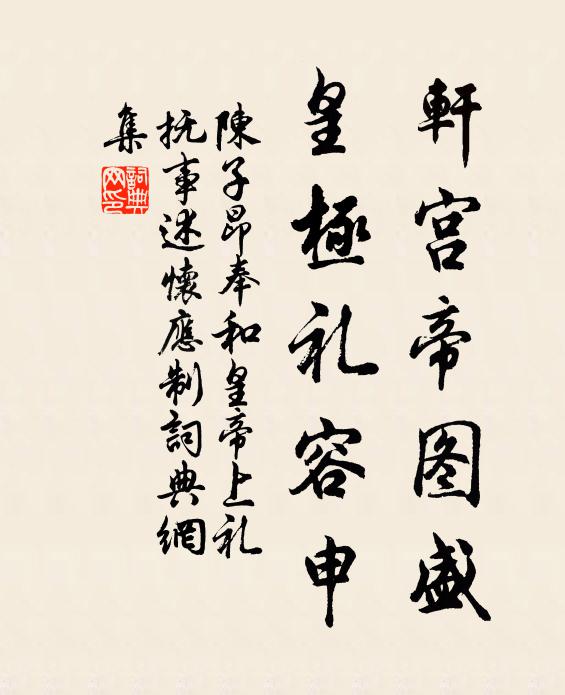 軒宮帝图盛
皇極礼容申
陳子昂奉和皇帝上礼
抚事述懷應制詞典網
集
詞典网印